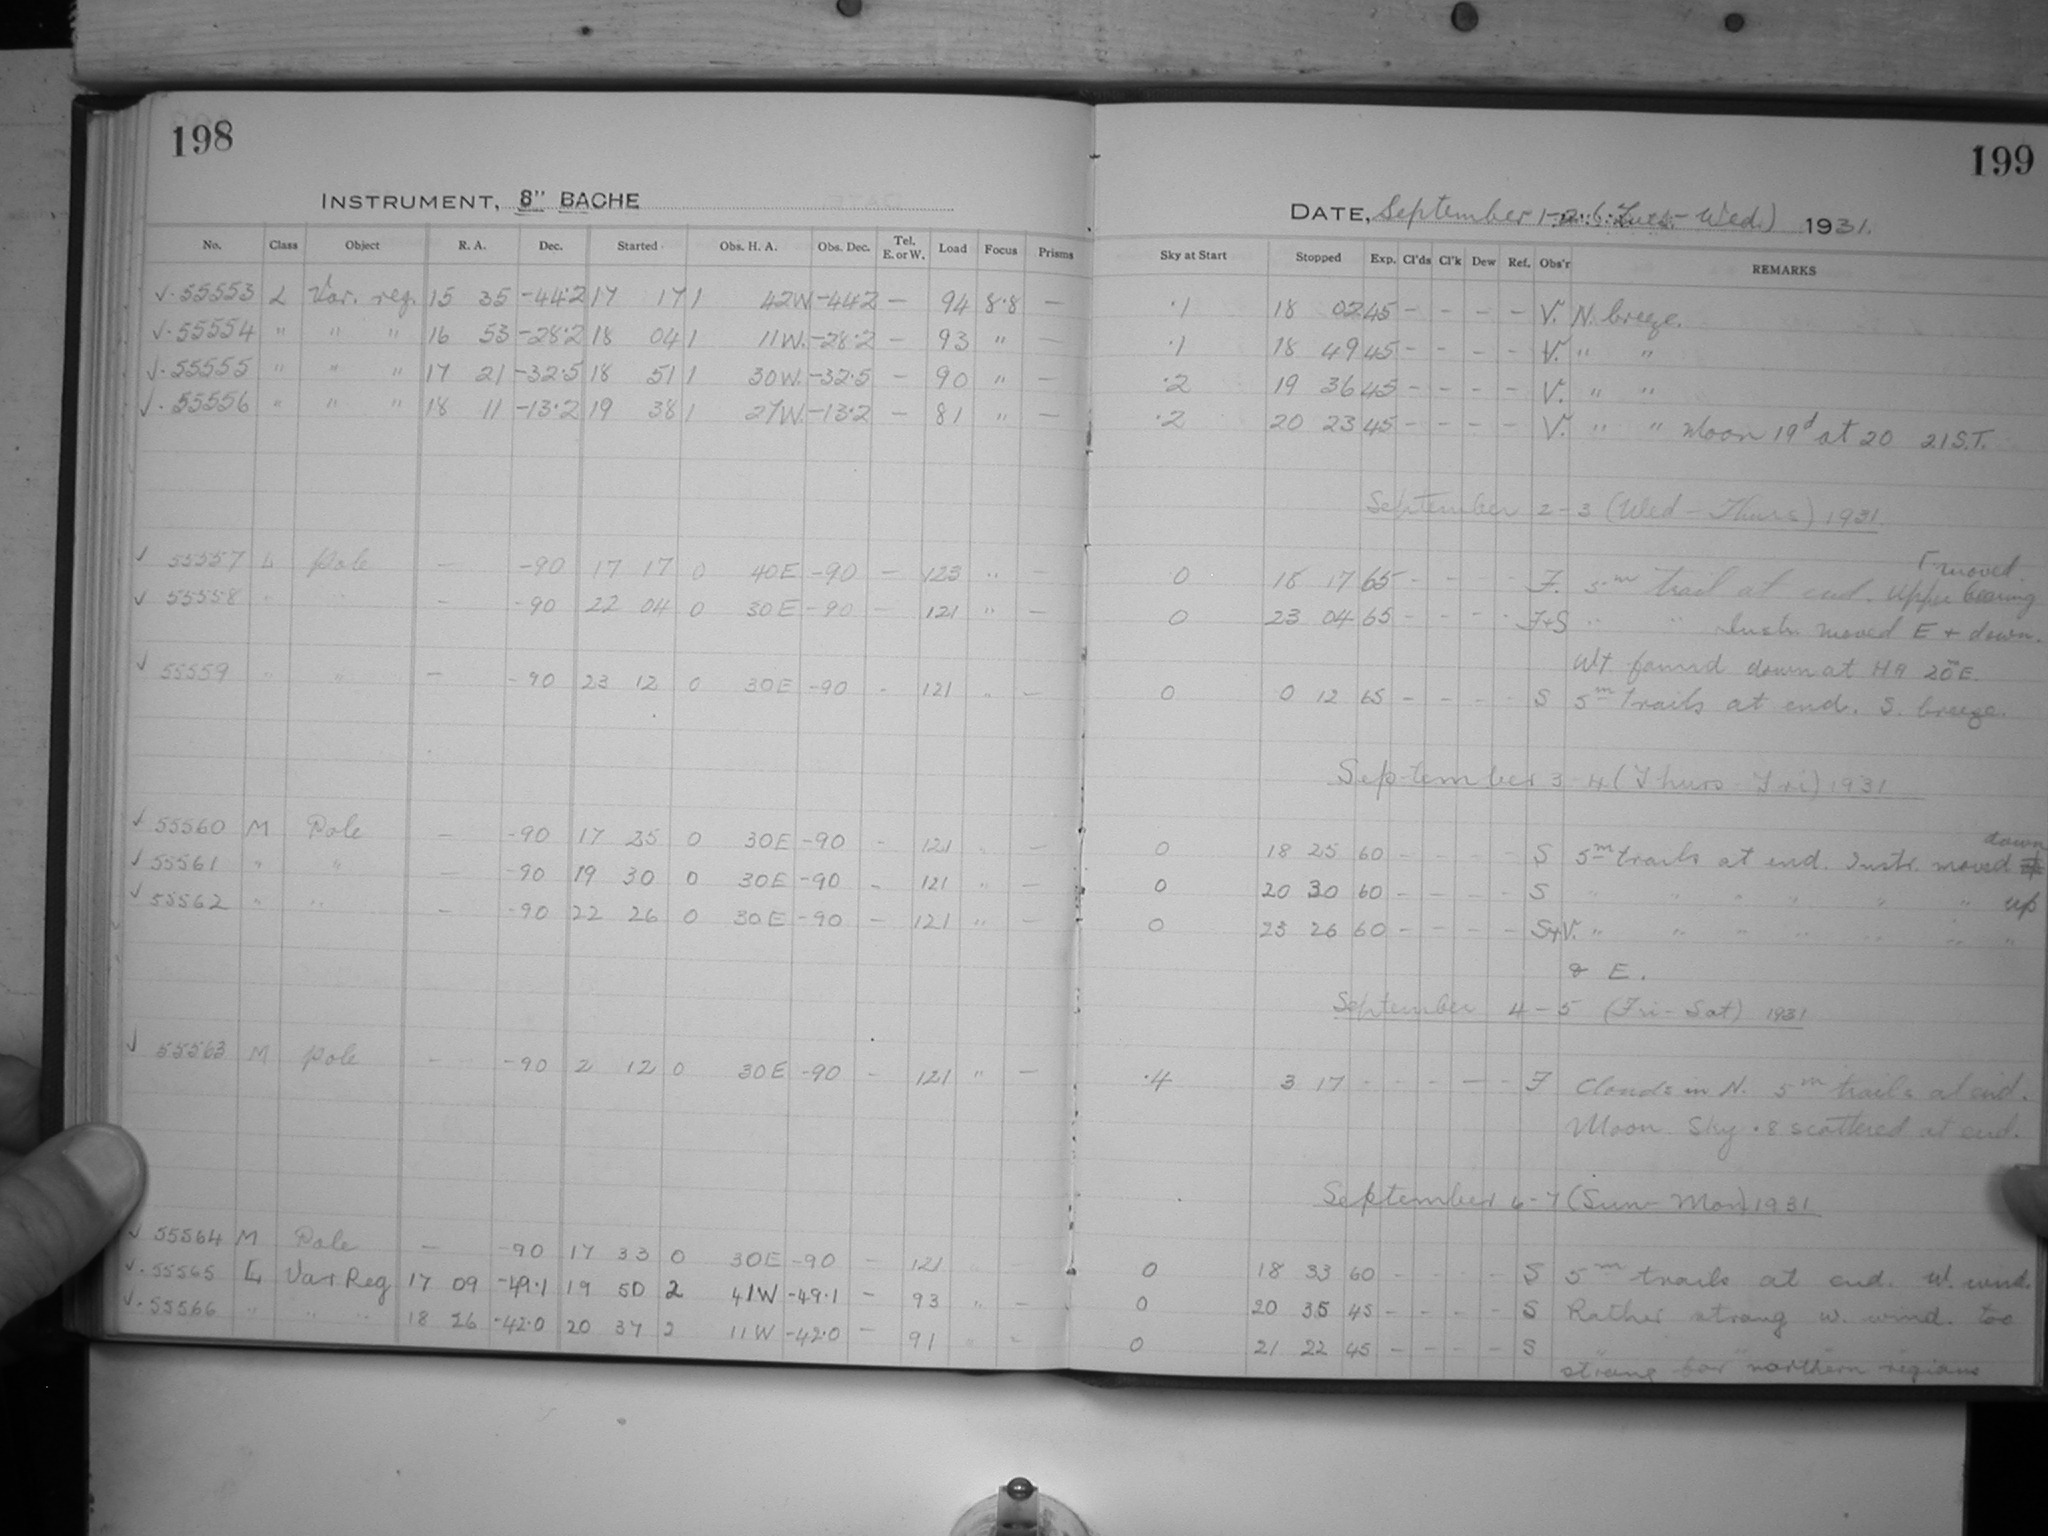 198
INSTRUMENT, 8" BACHE
No. Class Object R. A. Dec. Started Obs. H. A. Obs. Dec. Tel. E. or W. Load Focus Prisms
√. 55553 L Var. reg. 15 35 -44.2 17 17 1 42W -44.2 — 94 8.8 —
√. 55554 " " " 16 53 -28.2 18 04 1 11W. -28.2 — 93 " —
√. 55555 " " " 17 21 -32.5 18 51 1 30W. -32.5 — 90 " —
√. 55556 " " " 18 11 -13.2 19 38 1 27W. -13.2 — 81 " —
√ 55557 L Pole — -90 17 17 0 40E -90 — 123 " —
√ 55558 " " — -90 22 04 0 30E -90 — 121 " —
√ 55559 " " — -90 23 12 0 30E -90 - 121 " —
√ 55560 M Pole — -90 17 25 0 30E -90 - 121 " —
√ 55561 " " — -90 19 30 0 30E -90 - 121 " —
√ 55562 " " — -90 22 26 0 30E -90 — 121 " —
√ 55563 M Pole — -90 2 12 0 30E -90 — 121 " —
√ 55564 M Pole — -90 17 33 0 30E -90 — 121
√. 55565 L Var Reg 17 09 -49.1 19 50 2 41W -49.1 — 93 " —
√. 55566 " " " 18 26 -42.0 20 37 2 11W -42.0 — 91 " -
199
DATE, September 1-2 (Tues.-Wed.) 1931.
Sky at Start Stopped Exp. Cl'ds Cl'k Dew Ref. Obs'r REMARKS
.1 18 02 45 - - - - V. N. breeze.
.1 18 49 45 - - - - V. " "
.2 19 36 45 - - - - V. " "
.2 20 23 45 - - - - V. " " Moon 19d at 20 21 S.T.
September 2-3 (Wed-Thurs) 1931
moved.
0 18 17 65 - - - - F. 5m trail at end. Upper bearing
0 23 04 65 - - - - F+S " " Instr. moved E + down.
Wt. found down at HA 20m E.
0 0 12 65 - - - - S 5m trails at end. S. breeze.
September 3 4 (Thurs Fri) 1931
down
0 18 25 60 - - - - S 5m trails at end. Instr. moved
0 20 30 60 - - - - S " " " " " " up
0 23 26 60 - - - - S+V. " " " " " " "
& E.
September 4-5 (Fri-Sat) 1931
.4 3 17 - - - — - F Clouds in N. 5m trails at end.
Moon. Sky .8 scattered at end.
September 6-7 (Sun-Mon) 1931
0 18 33 60 - - - - S 5m trails at end. W. wind.
0 20 35 45 - - - - S Rather strong W. wind. too
0 21 22 45 - - - - S
strong for northern regions